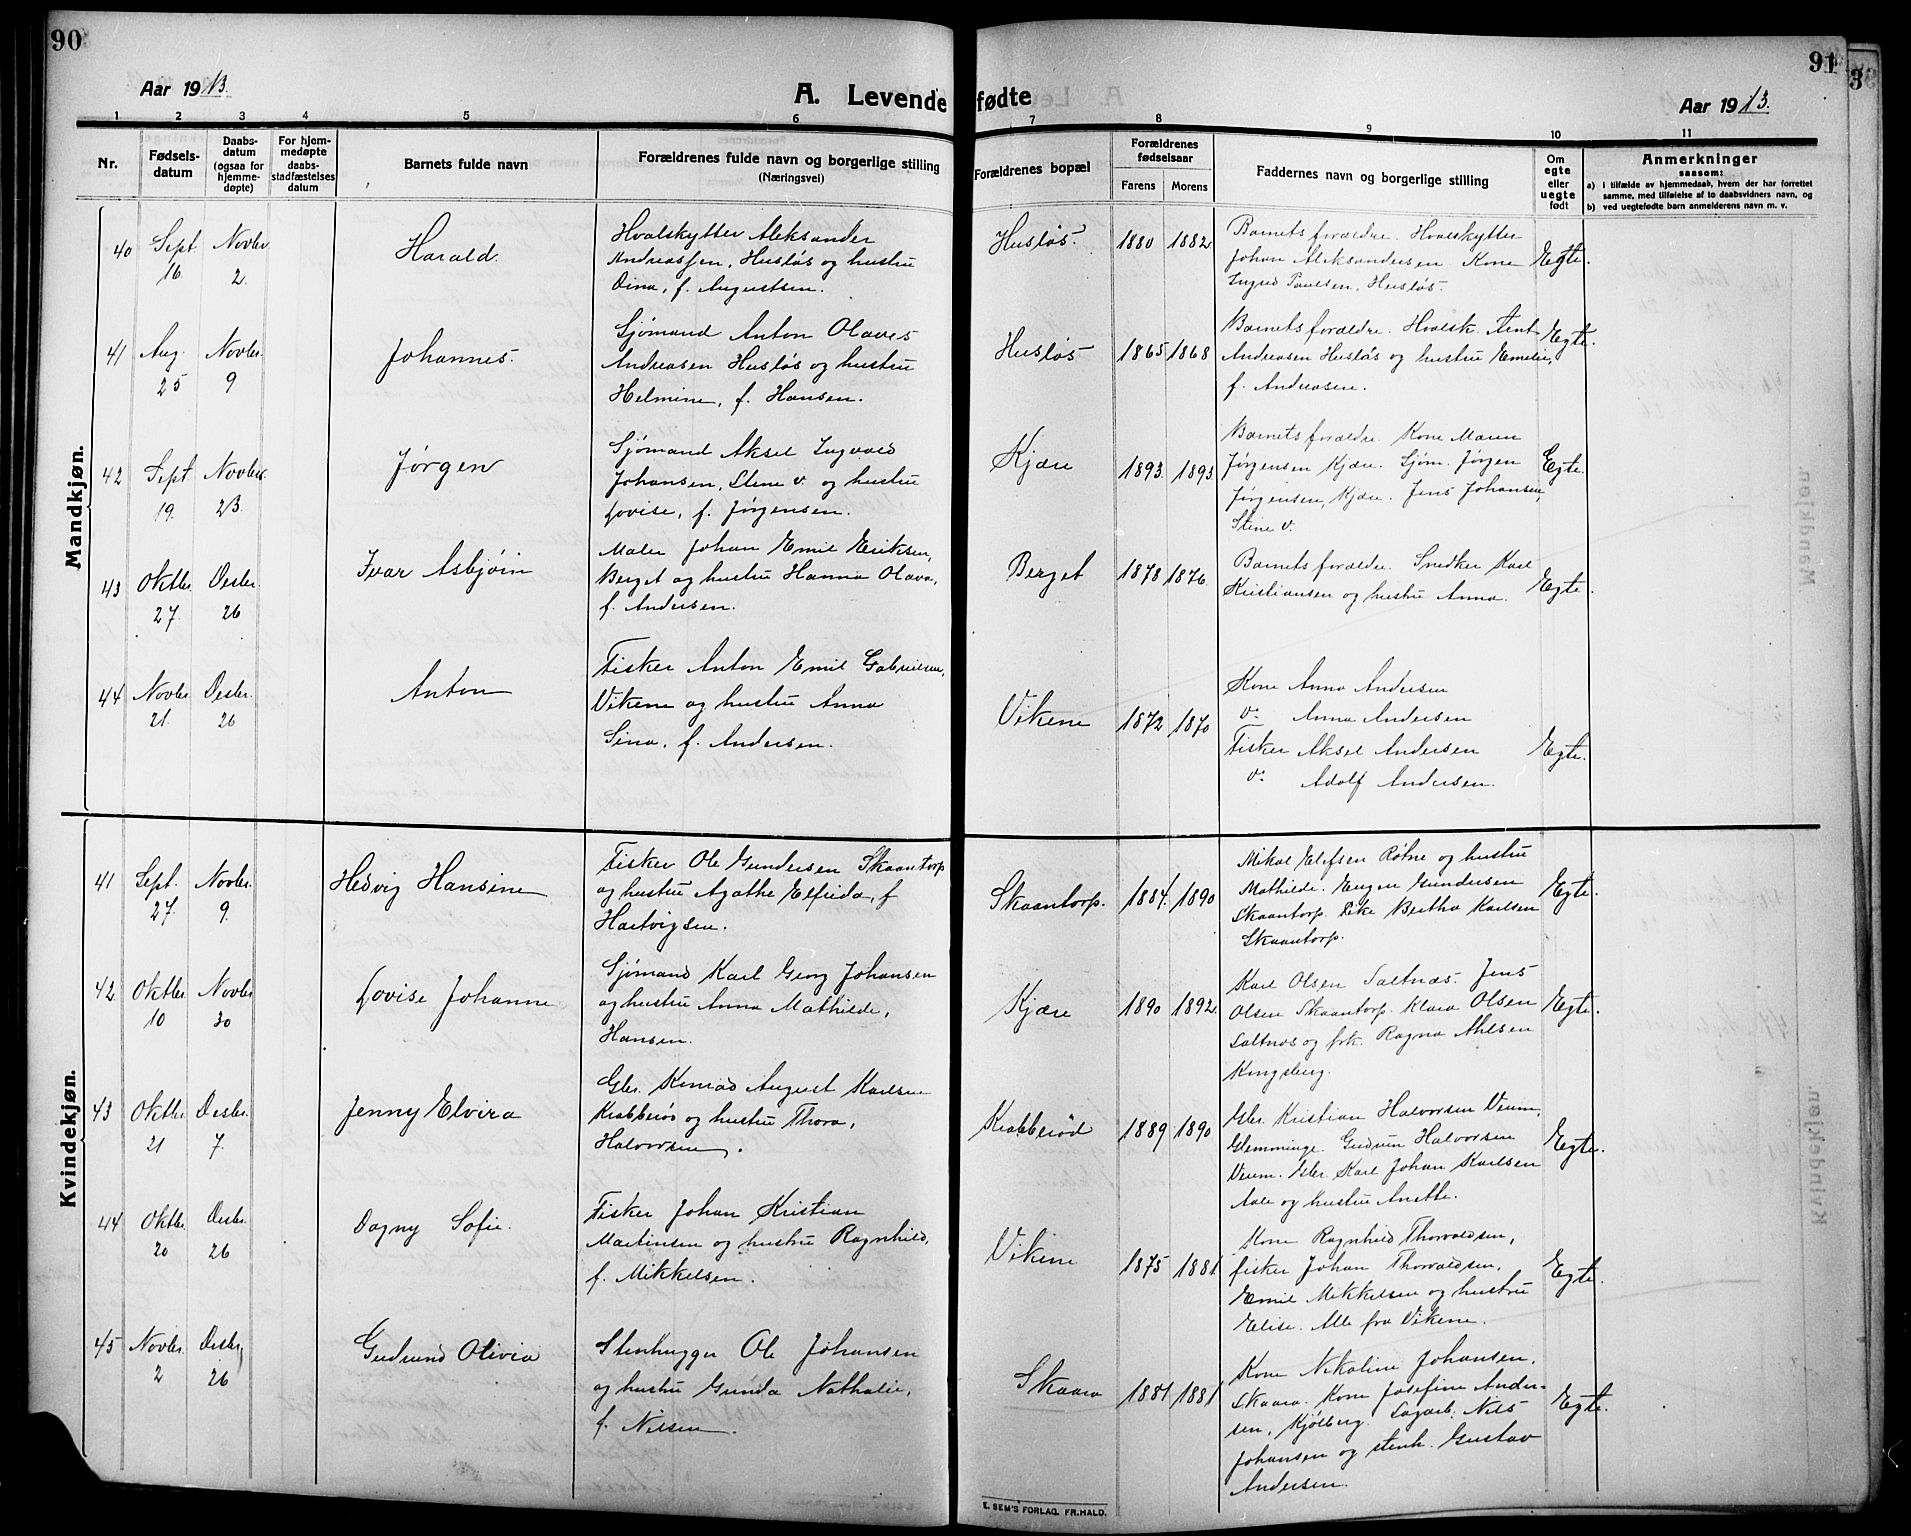 90
Aar 1913.
A. Levende
1 2 3 4 5 6
Nr.
Fødsels-
datum
Daabs-
datum
(ogsaa for
hjemme-
døpte)
For hjem-
medøpte
daabs-
stadfæstelses
datum
Barnets fulde navn
Forældrenes fulde navn og borgerlige stilling
(Næringsvei)
Mandkjøn.
40 Sept. 16 Novbr. 2.
Harald.
Hvalskytter Aleksander
Andreassen, Husløs og hustru
Dina, f. Augustsen.
41 Aug. 25 Novbr. 9
Johannes.
Sjømand Anton Olaves
Andreasen Husløs og hustru
Helmine, f. Hansen.
42 Sept. 19. Novbr. 23.
Jørgen
Sjømand Aksel Ingvald
Johansen, Stene v. og hustru
Lovise, f. Jørgensen.
43 Oktbr. 27. Desbr. 26
Ivar Asbjørn
Maler Johan Emil Eriksen,
Berget og hustru Hanna Olava,
f. Andersen.
44 Novbr. 21. Desbr. 26
Anton
Fisker Anton Emil Gabrielsen,
Vikene og hustru Anna
Sina, f. Andersen.
Kvindekjøn.
41 Sept. 27. Novbr. 9.
Hedvig Hansine
Fisker Ole Gundersen Skaantorp
og hustru Agathe Elfrida, f
Hartvigsen.
42 Oktbr. 10 Novbr. 30
Lovise Johanne
Sjømand Karl Georg Johansen
og hustru Anna Mathilde,
Hansen.
43 Oktbr. 21 Desbr. 7.
Jenny Elvira
Gbr. Konrad August Karlsen
Krabberød og hustru Thora,
Halvorsen.
44 Oktbr. 20 Desbr. 26
Dagny Sofie.
Fisker Johan Kristian
Martinsen og hustru Ragnhild,
f. Mikkelsen.
45 Novbr. 2 Desbr. 26
Gudrund Olivia
Stenhugger Ole Johansen
og hustru Gunda Nathalie,
f. Nilsen.
91
3
fødte
Aar 1913.
7 8 9 10 11
Forældrenes bopæl
Forældrenes
fødselsaar
Farens Morens
Faddernes navn og borgerlige stilling
Om
egte
eller
uegte
født
Anmerkninger
saasom:
a) i tilfælde av hjemmedaab, hvem der har forrettet
samme, med tilføielse af to daabsvidners navn, og
b) ved uegtefødte barn anmelderens navn m. v.
Husløs. 1880 1882
Barnets forældre. Hvalskytter
Johan Aleksandersen Kone
Ingrid Paulsen, Husløs.
Egte.
Husløs 1865 1868
Barnets forældre. Hvalsk. Arnt
Andreasen Husløs og hustru Emelie,
f. Andreasen.
Egte.
Kjære 1893 1893
Barnets forældre. Kone Maren
Jørgensen Kjære. Sjøm. Jørgen
Jørgensen, Kjære. Jens Johansen,
Stene v.
Egte.
Berget 1878 1876
Barnets forældre. Snedker Karl
Kristiansen og hustru Anna.
Egte.
Vikene 1872 1870
Kone Anna Andersen
do. Anna Andersen
Fisker Aksel Andersen
do. Adolf Andersen.
Egte.
Skaantorp. 1884. 1890
Mikal Elefsen Røtne og hustru
Mathilde. Eugen Gundersen
Skaantorp. Pike Bertha Karlsen
Skaantorp.
Egte.
Kjære 1890 1892
Karl Olsen Saltnes. Jens
Olsen Skaantorp. Klara Olsen
Saltnes og frk. Ragna Ahlsen
Kongsberg.
Egte.
Krabberød 1889 1890
Gbr. Kristian Halvorsen Veum,
Glemminge. Gudrun Halvorsen
Veum. Gbr. Karl Johan Karlsen
Aale og hustru Anette.
Egte.
Vikene 1875 1881
Kone Ragnhild Thorvaldsen,
fisker Johan Thorvaldsen,
Emil Mikkelsen og hustru
Elise. Alle fra Vikene.
Egte.
Skaara 1881 1881
Kone Nikoline Johansen,
Skaara. Kone Josefine Ander-
sen, Kjølberg. Sagarb. Nils
Johansen og stenh. Gustav
Andersen.
Egte.
E. SEM'S FORLAG, FR.HALD.